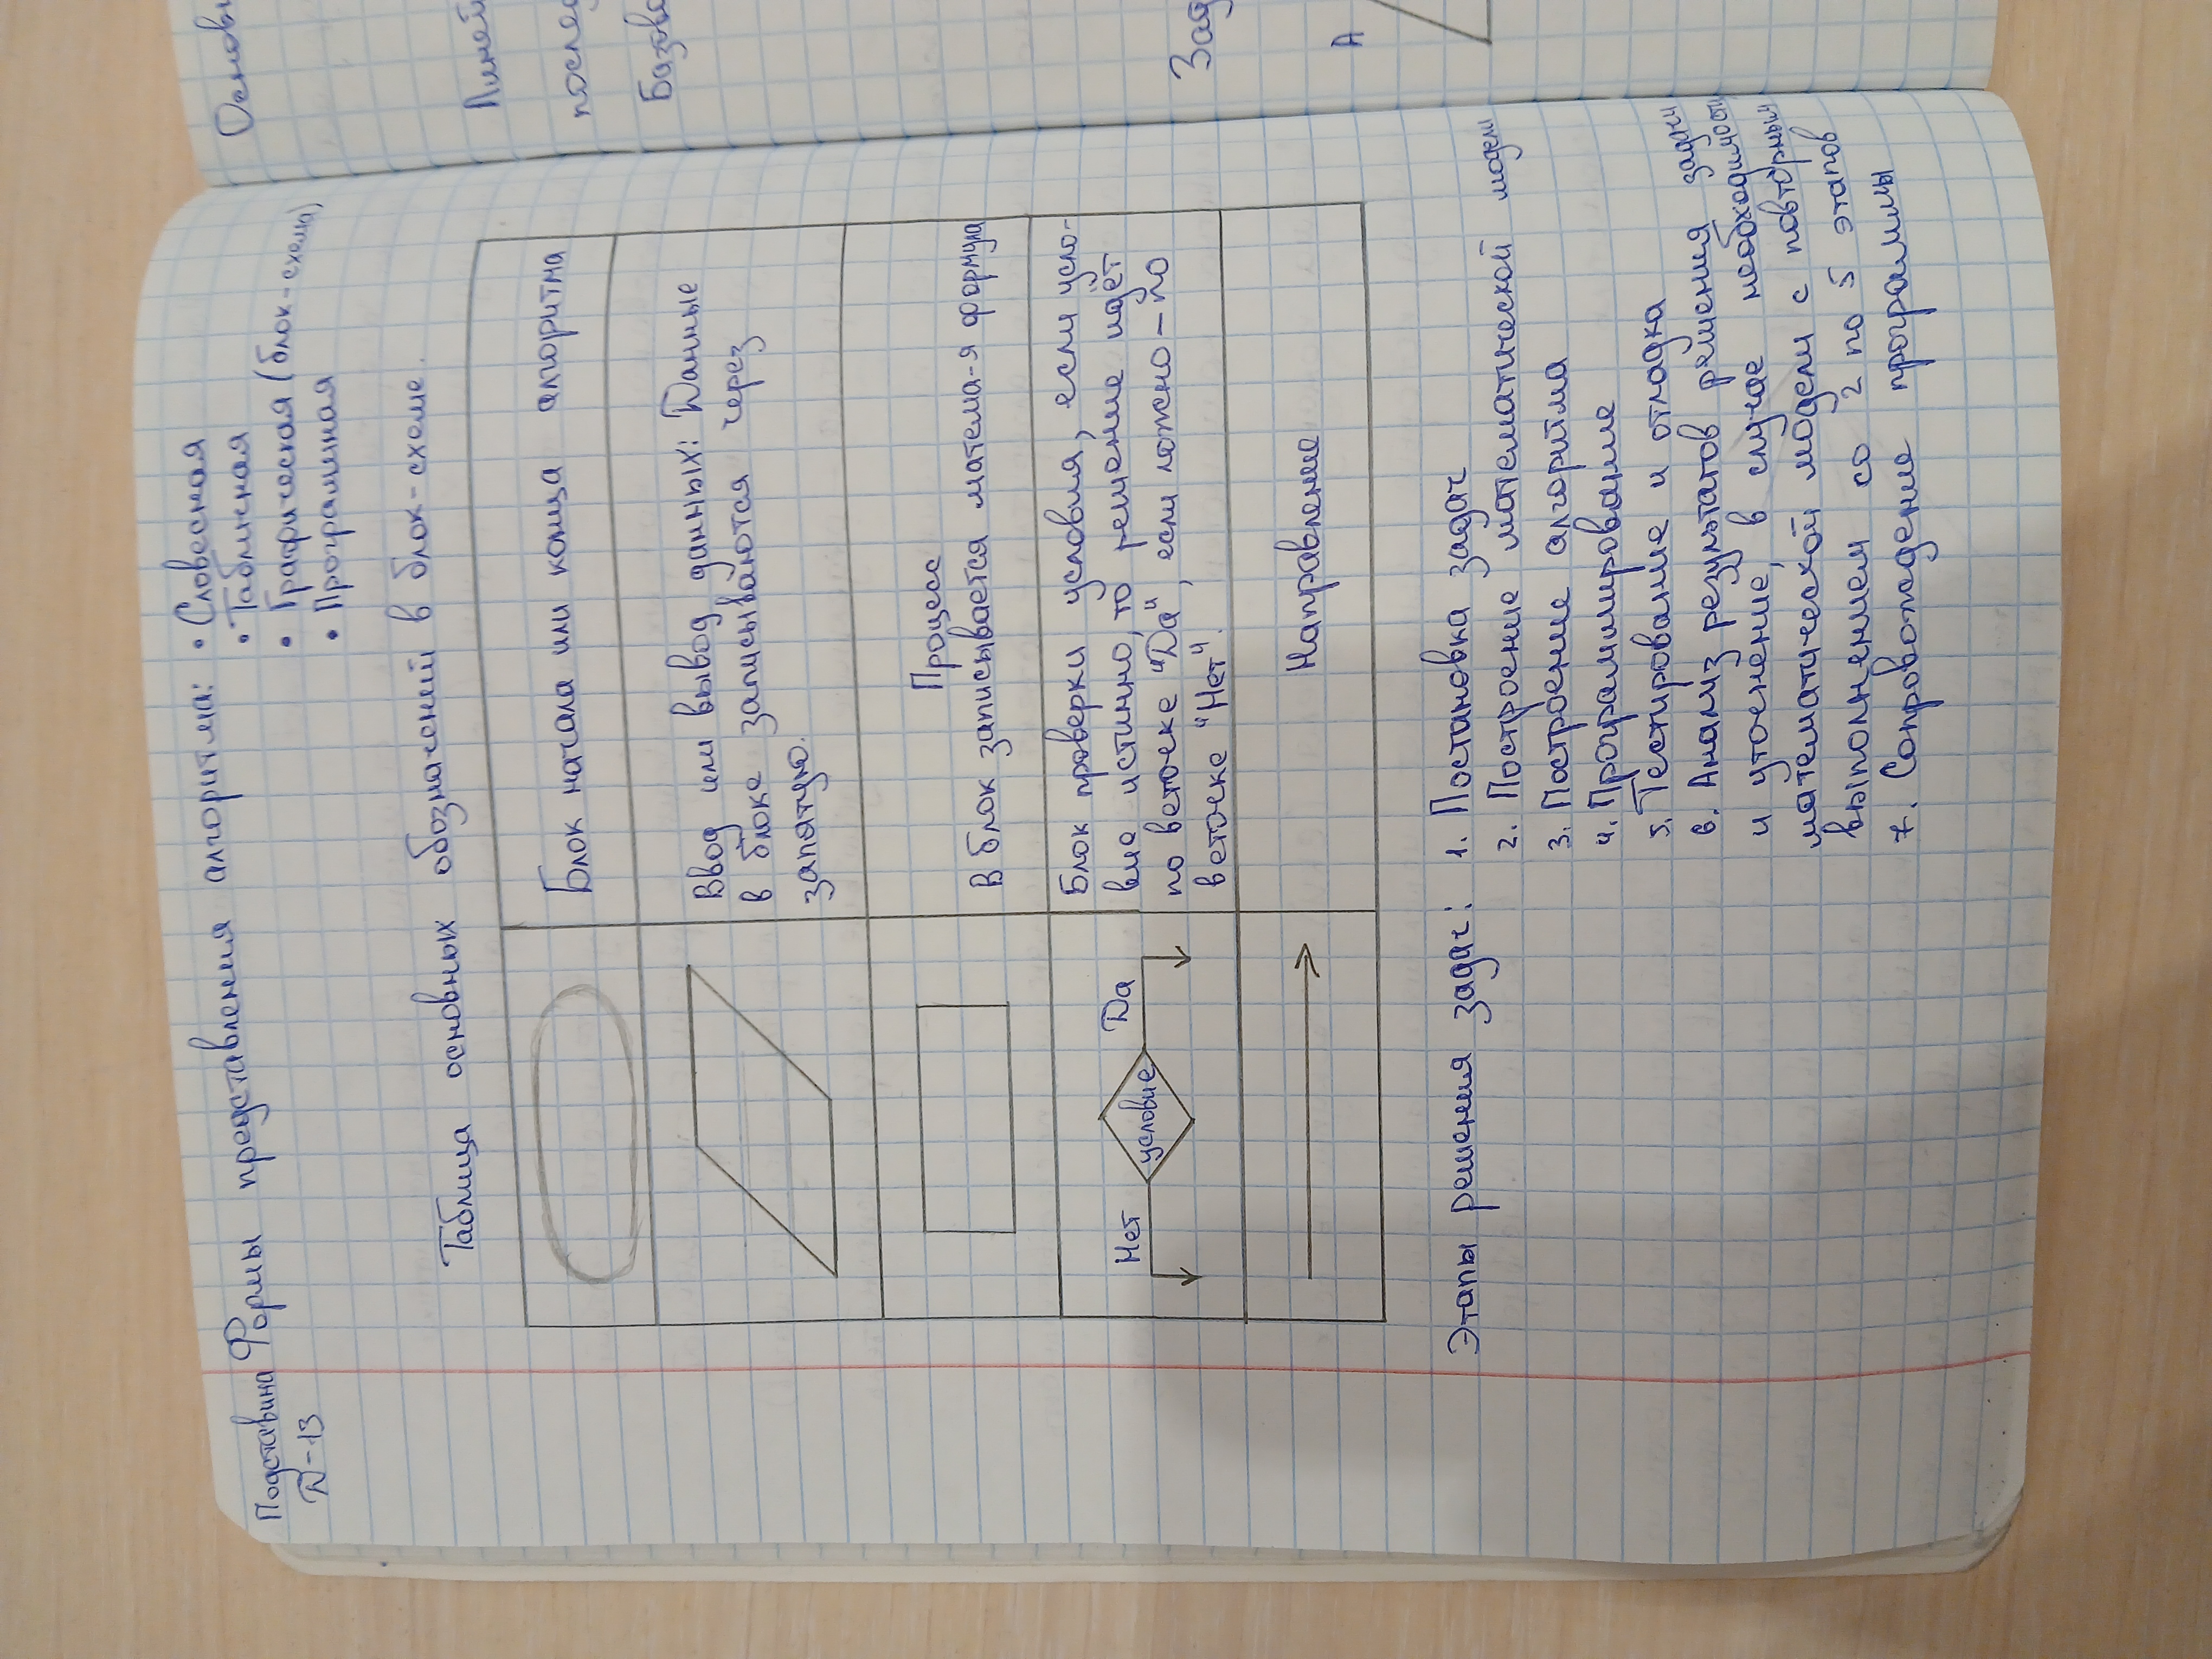 Подставина
Д-13
Формы представления алгоритма: • Словесная
• Табличная
• Графическая (блок-схема)
• Программная
Таблица основных обозначений в блок-схеме.
Блок начала или конца алгоритма
Ввод или вывод данных: Данные
в блоке записываются через
запятую.
Процесс
В блок записывается матема-я формула
Нет
условие
Да
Блок проверки условия, если усло-
вие истинно, то решение идёт
по веточке "Да", если ложно - по
веточке "Нет".
Направление
Этапы решения задач: 1. Постановка задач
2. Построение математической модели
3. Построение алгоритма
4. Программирование
5. Тестирование и отладка
6. Анализ результатов решения задачи
и уточнение, в случае необходимости
математической модели с повторным
выполнением со 2 по 5 этапов
7. Сопровождение программы
Основ
Линей
послед
Базов
Зад
А